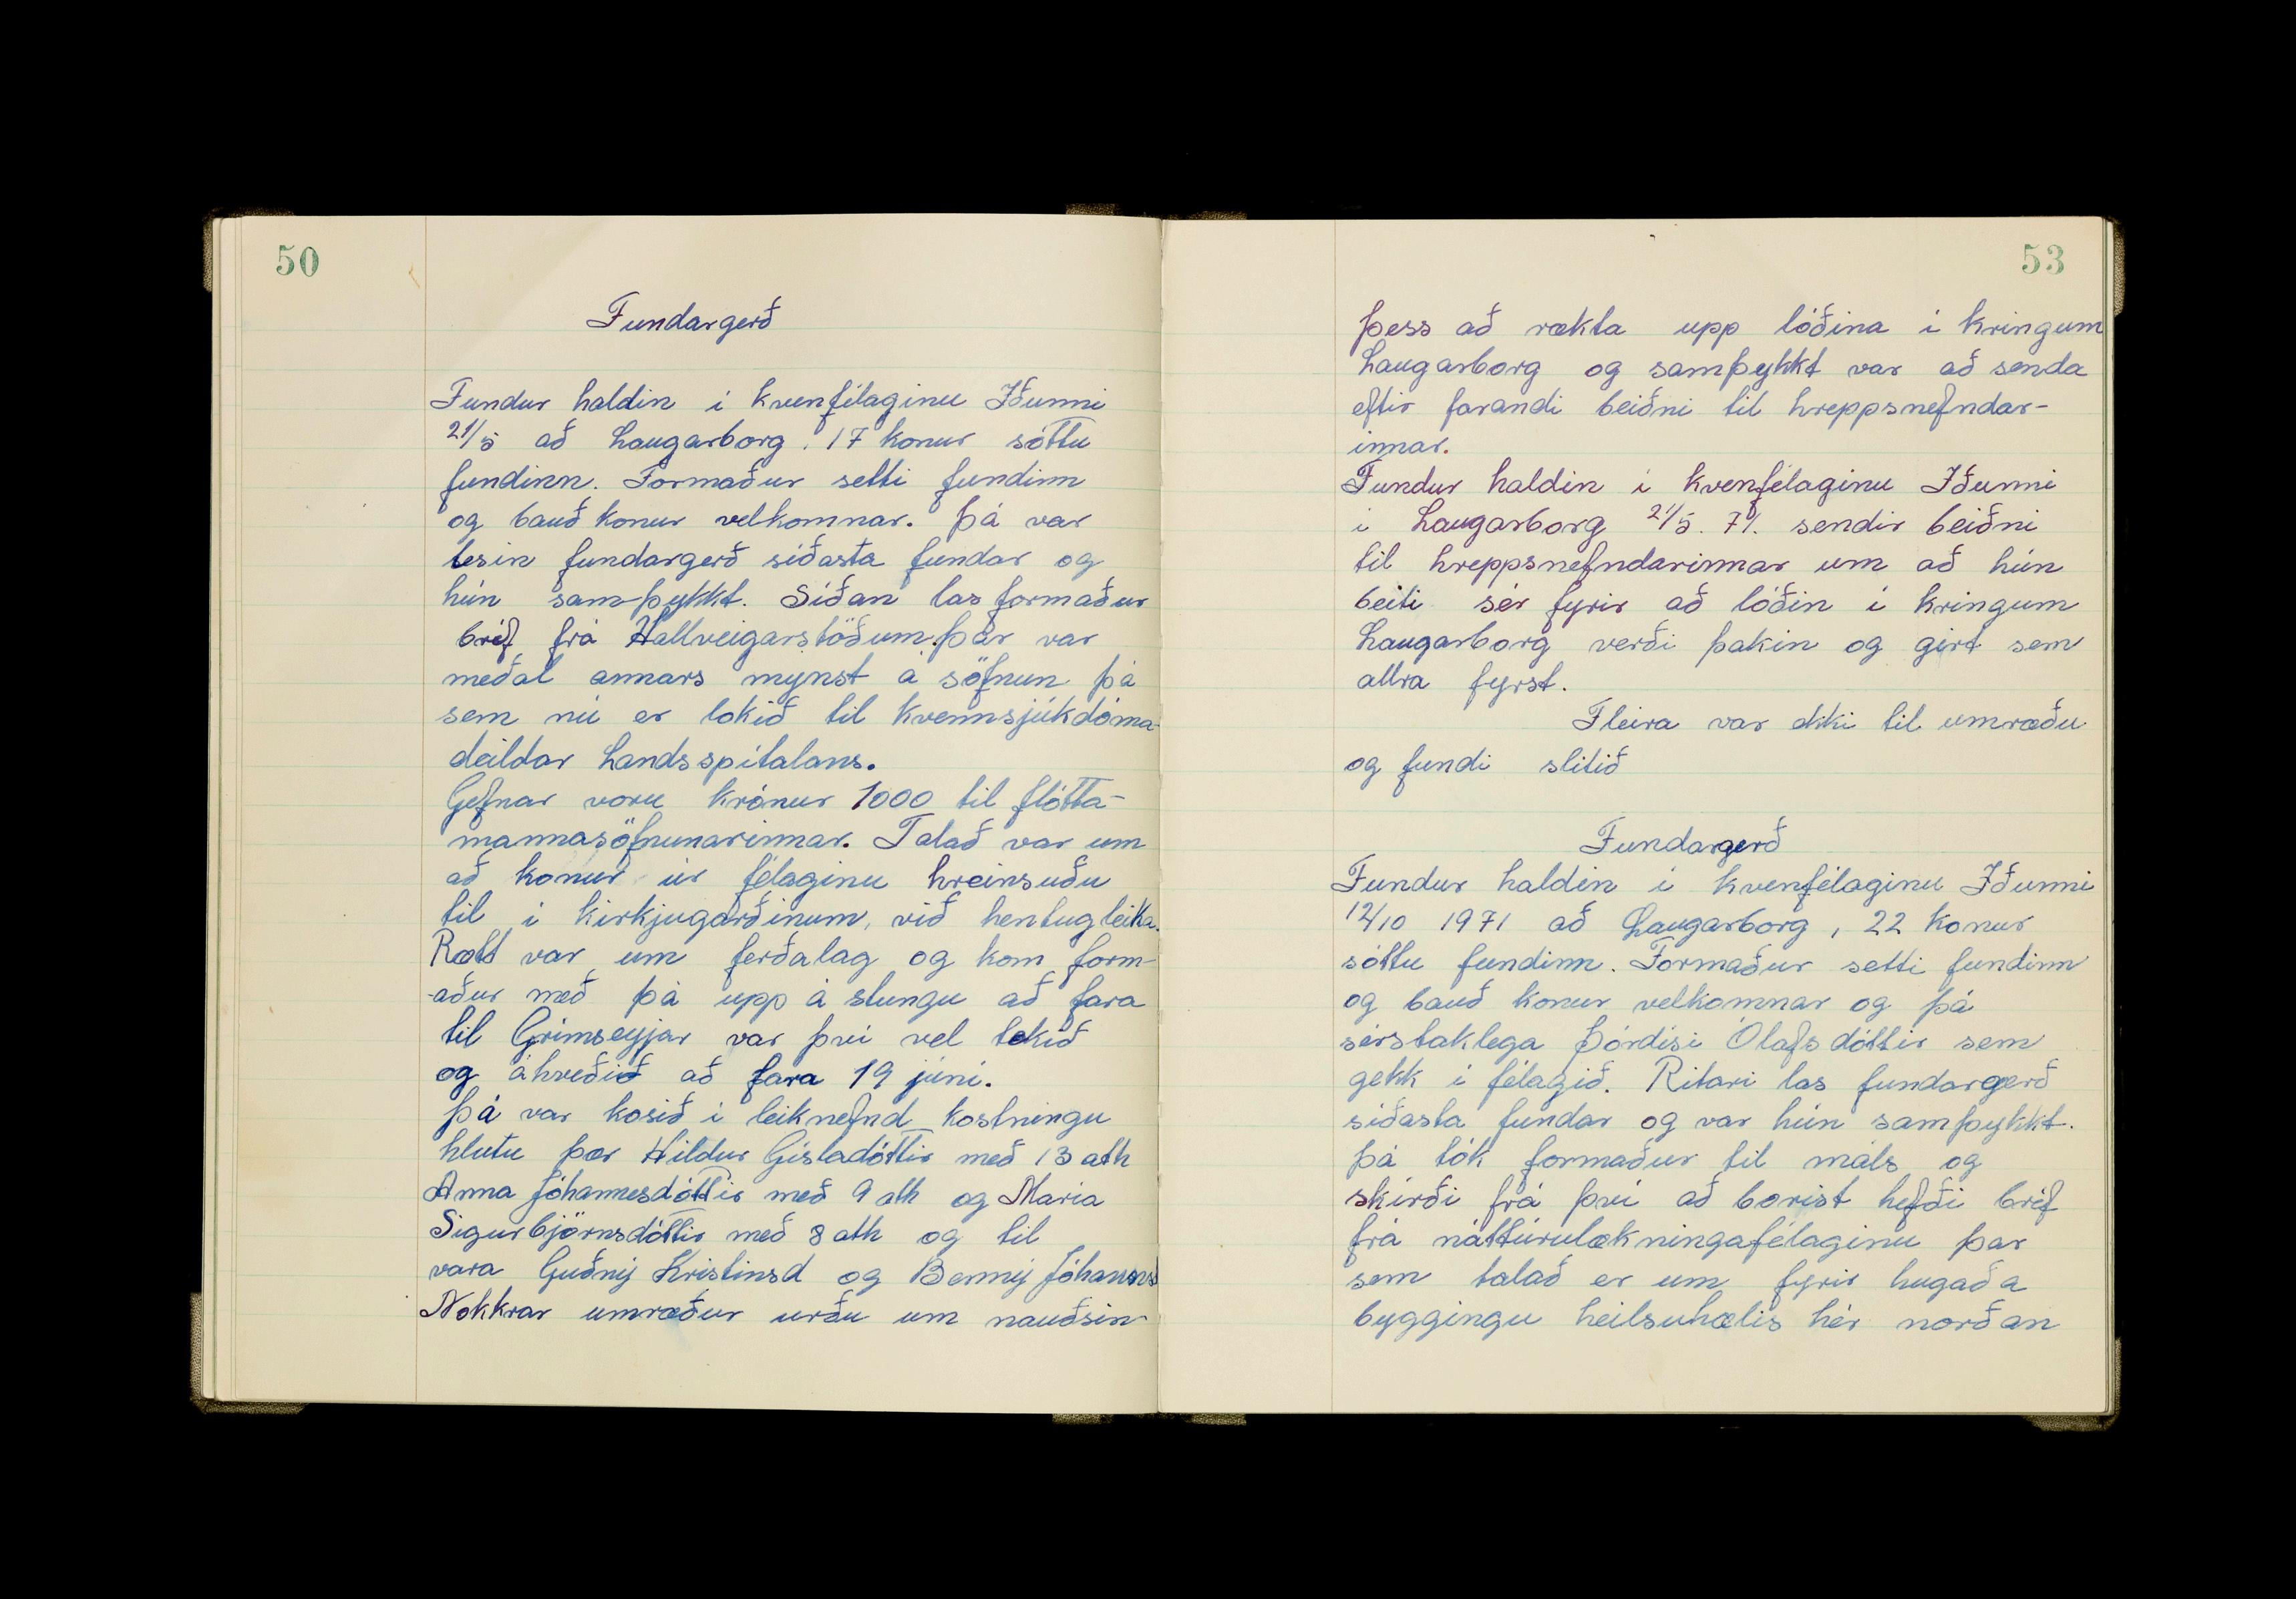 50
Fundargerð
Fundur haldin í kvenfélaginu Iðunni
21/5 að Laugarborg. 17 konur sóttu
fundinn. Formaður setti fundinn
og bauð konur velkomnar. Þá var
lesin fundargerð síðasta fundar og
hún samþykkt. Síðan las formaður
bréf frá Hallveigarstöðum. Þar var
meðal annars mynst á söfnun þá
sem nú er lokið til kvennsjúkdóma-
deildar Landsspítalans.
Gefnar voru krónur 1000 til flótta-
mannasöfnunarinnar. Talað var um
að konur úr félaginu hreinsuðu
til í kirkjugarðinum, við hentugleika.
Rætt var um ferðalag og kom form-
-aður með þá upp á stungu að fara
til Grímseyjar var því vel tekið
og ákveðið að fara 19 júní.
Þá var kosið í leiknefnd kostningu
hlutu þær Hildur Gísladóttir með 13 atk
Anna Jóhannesdóttir með 9 atk og María
Sigurbjörnsdóttir með 8 atk og til
vara Guðný Kristinsd og Benný Jóhannsd
Nokkrar umræður urðu um nauðsin
53
þess að rækta upp lóðina í kringum
Laugarborg og samþykkt var að senda
eftir farandi beiðni til hreppsnefndar-
innar.
Fundur haldin í kvenfélaginu Iðunni
í Laugarborg 21/5. 71. sendir beiðni
til hreppsnefndarinnar um að hún
beiti sér fyrir að lóðin í kringum
Laugarborg verði þakin og girt sem
allra fyrst.
Fleira var ekki til umræðu
og fundi slitið
Fundargerð
Fundur haldin í kvenfélaginu Iðunni
12/10 1971 að Laugarborg, 22 konur
sóttu fundinn. Formaður setti fundinn
og bauð konur velkomnar og þá
sérstaklega Þórdísi Ólafsdóttir sem
gekk í félagið. Ritari las fundargerð
síðasta fundar og var hún samþykkt.
Þá tók formaður til máls og
skírði frá því að borist hefði bréf
frá náttúrulækningafélaginu þar
sem talað er um fyrir hugaða
byggingu heilsuhælis hér norðan